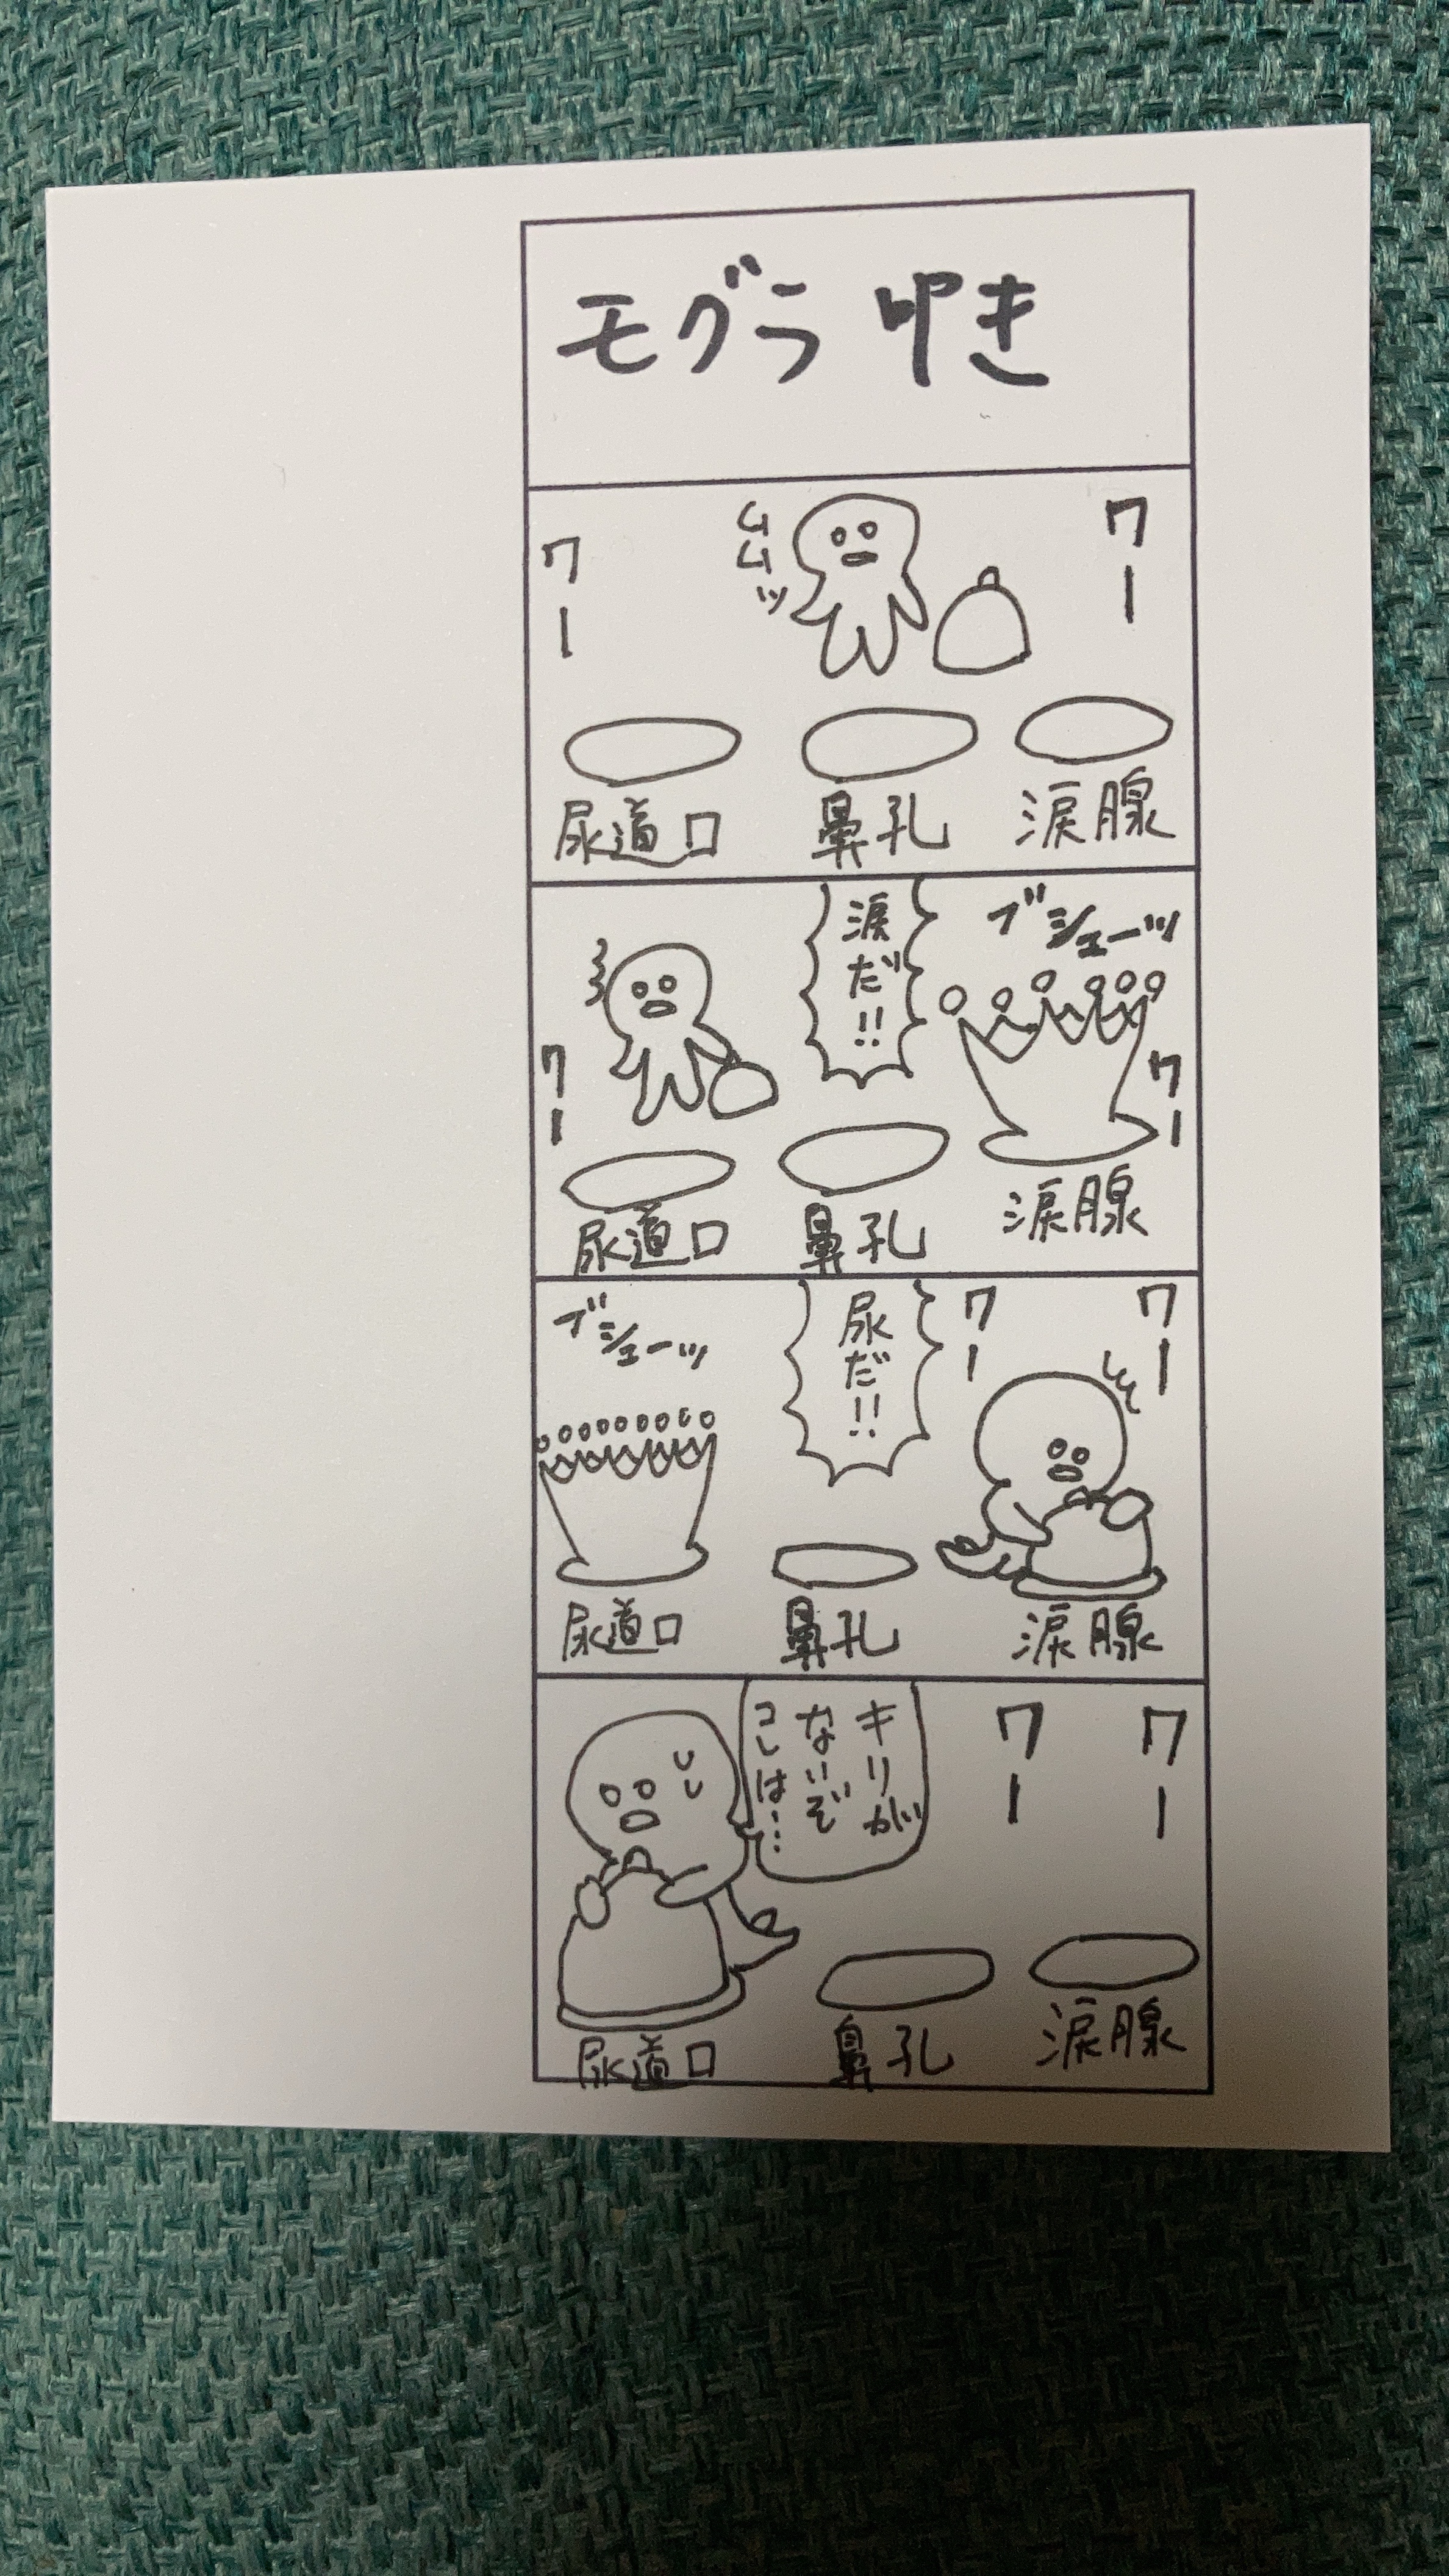 モグラ叩き
ワー
ムムッ
ワー
尿道口
鼻孔
涙腺
ブシューッ
涙だ!!
ワー
ワー
尿道口
鼻孔
涙腺
ワー
ワー
尿だ!!
ブシューッ
尿道口
鼻孔
涙腺
ワー
ワー
キリが
ないぞ
コレは…
尿道口
鼻孔
涙腺